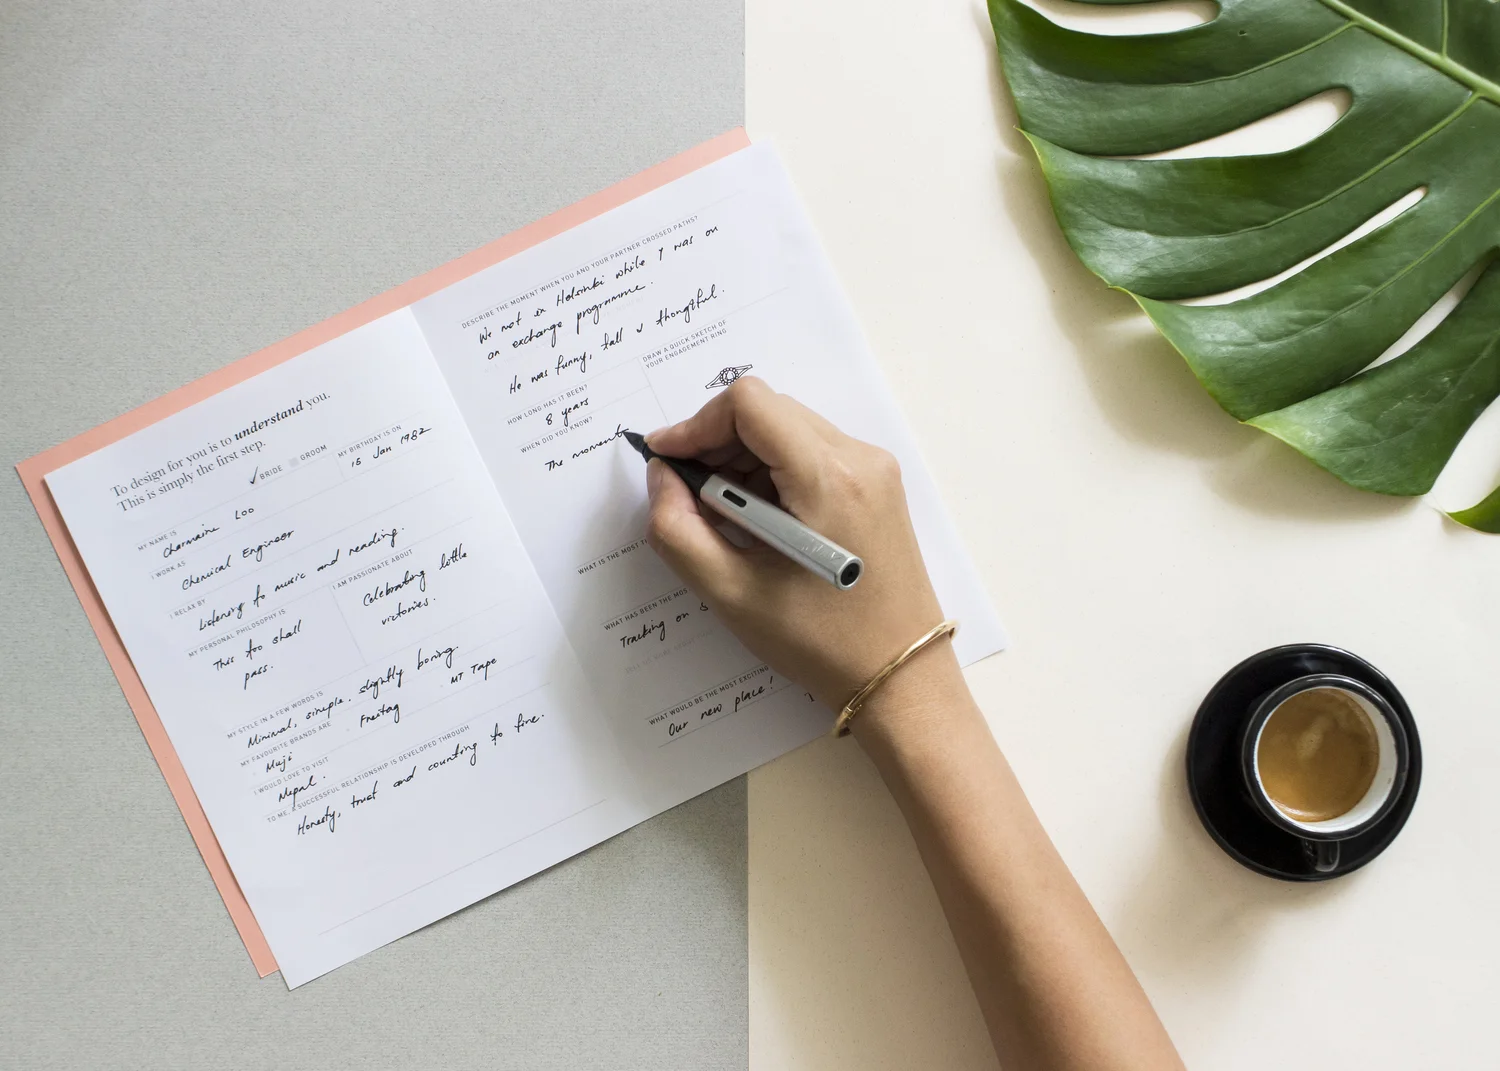 To design for you is to understand you.
This is simply the first step.
✓ BRIDE GROOM
MY BIRTHDAY IS ON
15 Jan 1982
MY NAME IS
Charmaine Loo
I WORK AS
Chemical Engineer
I RELAX BY
Listening to music and reading.
MY PERSONAL PHILOSOPHY IS
This too shall
pass.
I AM PASSIONATE ABOUT
Celebrating little
victories.
MY STYLE IN A FEW WORDS IS
Minimal, simple, slightly boring.
MY FAVOURITE BRANDS ARE
Muji Freitag MT Tape
I WOULD LOVE TO VISIT
Nepal.
TO ME, A SUCCESSFUL RELATIONSHIP IS DEVELOPED THROUGH
Honesty, trust and counting to five.
DESCRIBE THE MOMENT WHEN YOU AND YOUR PARTNER CROSSED PATHS?
We met in Helsinki while I was on
an exchange programme.
He was funny, tall & thoughtful.
HOW LONG HAS IT BEEN?
8 years
DRAW A QUICK SKETCH OF
YOUR ENGAGEMENT RING
WHEN DID YOU KNOW?
The moment
WHAT IS THE MOST
WHAT HAS BEEN THE MOS
Tracking on
WHAT WOULD BE THE MOST EXCITING
Our new place!